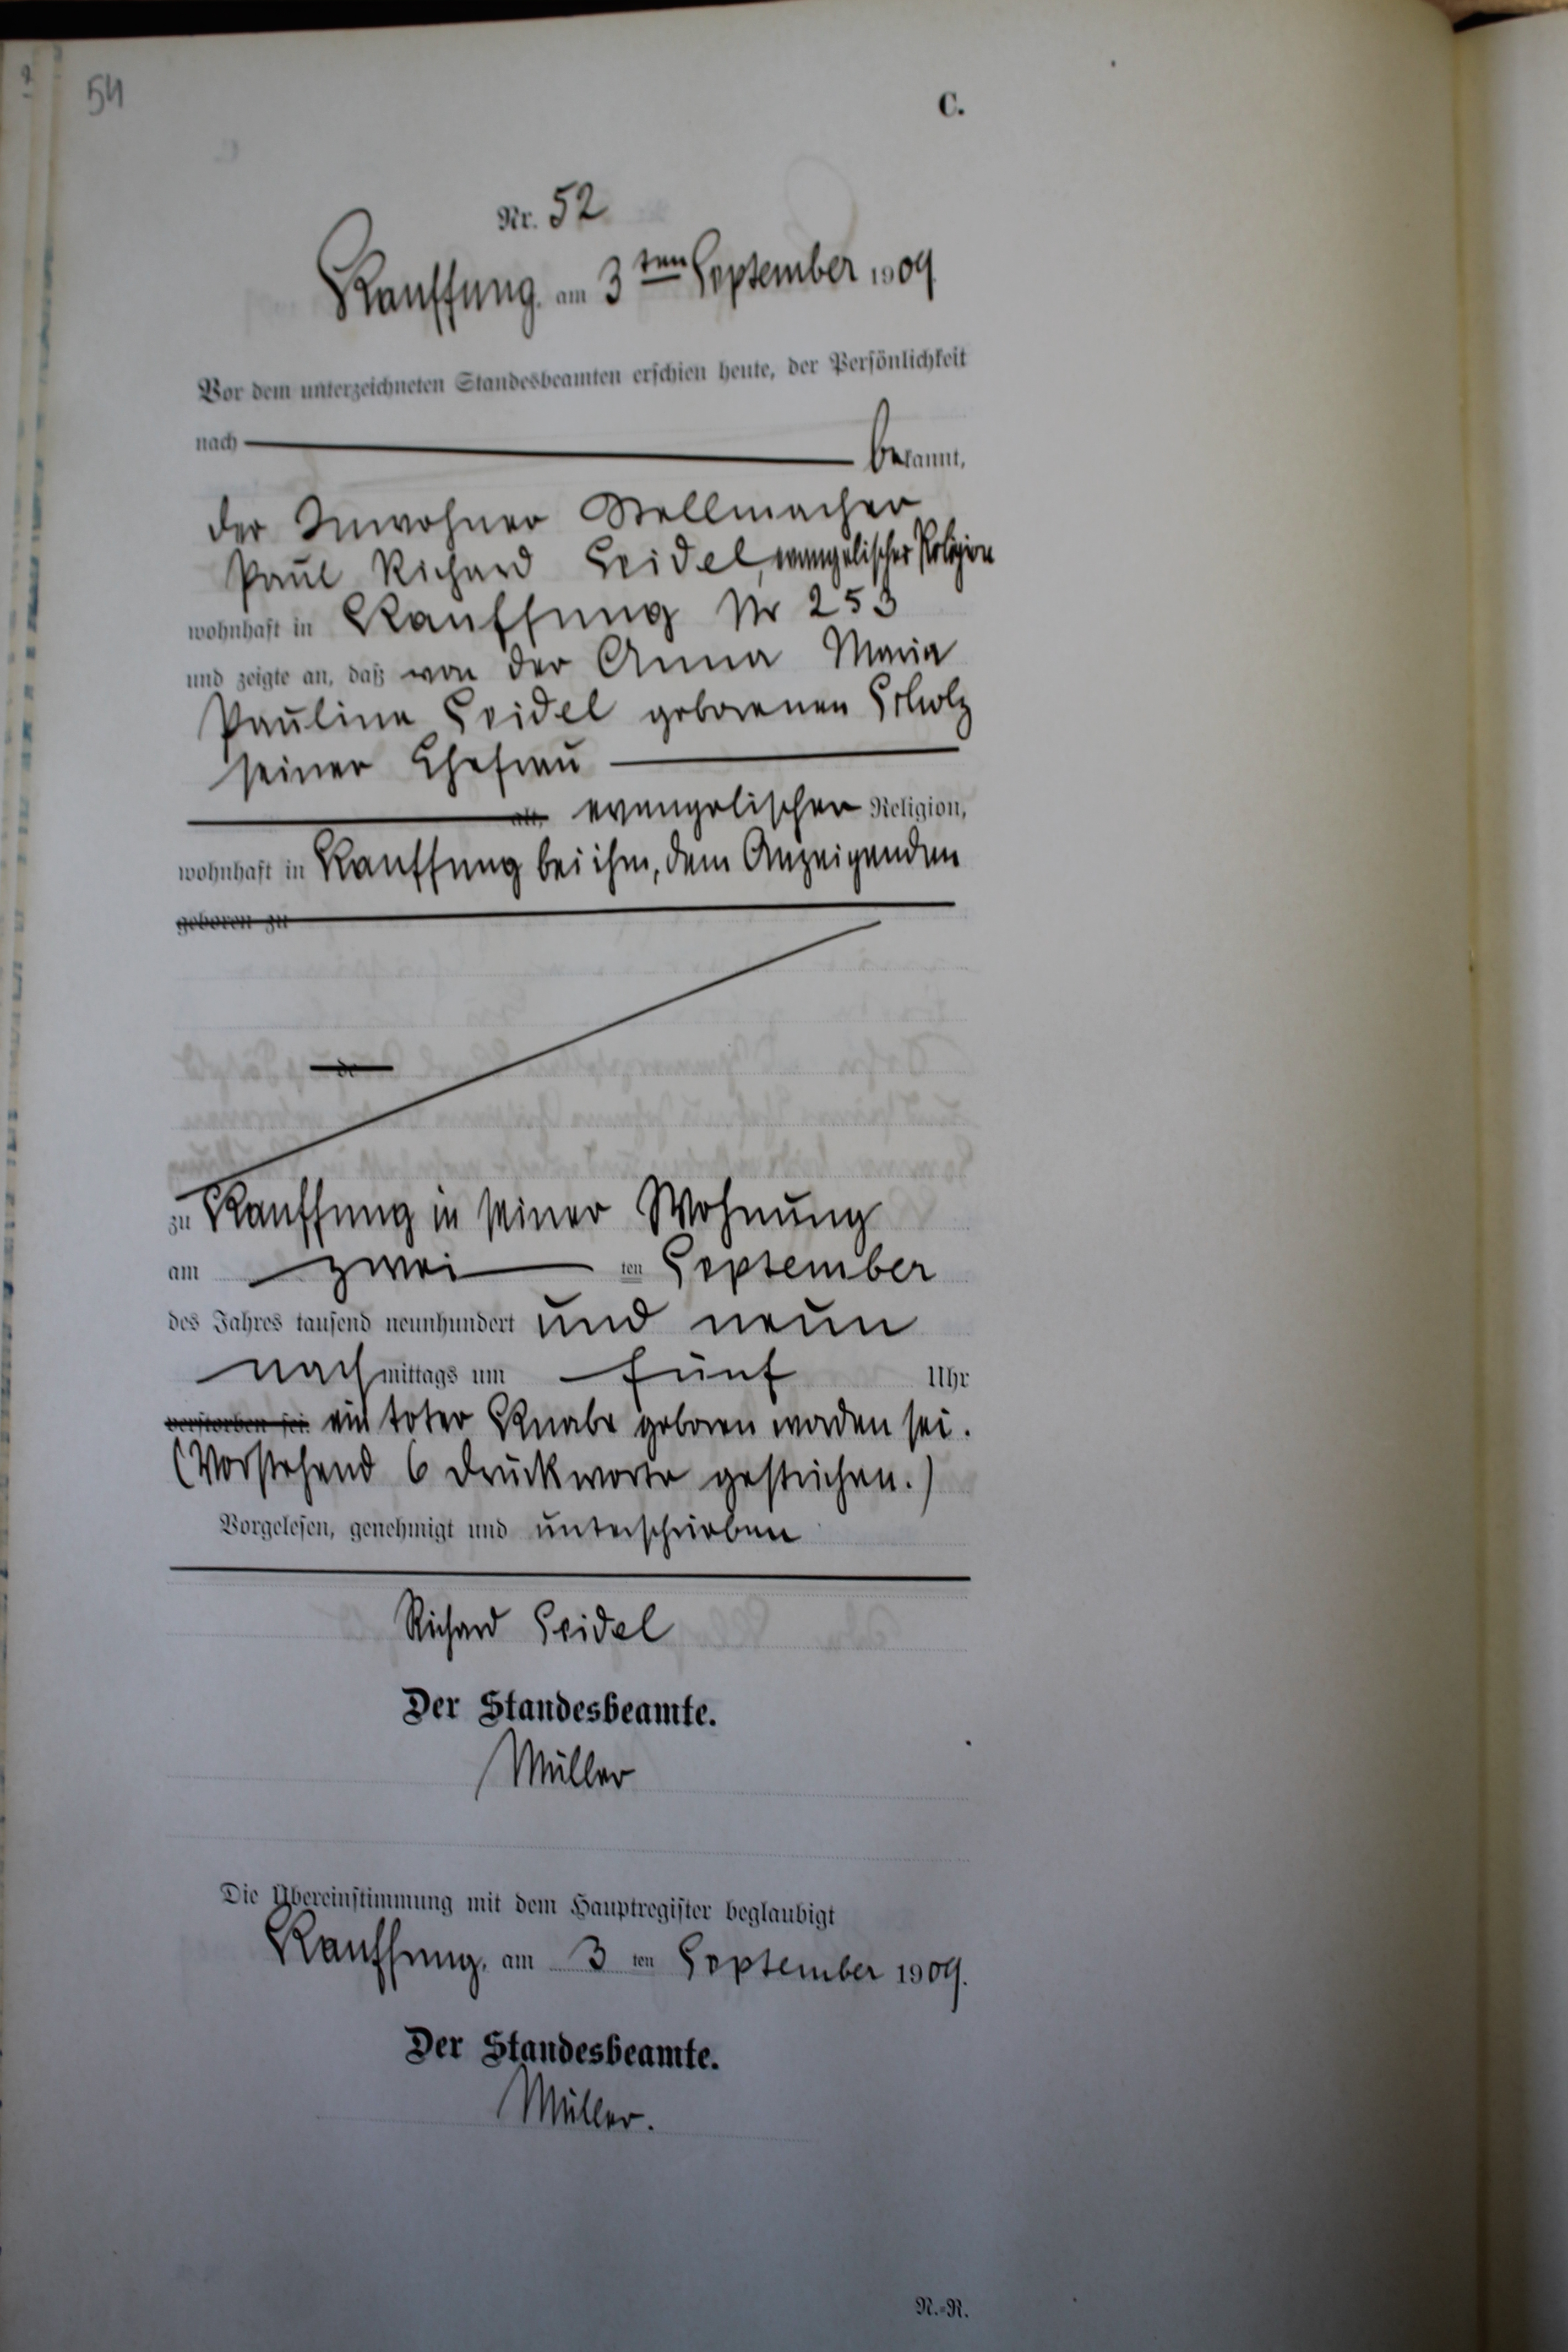 54
C.
Nr. 52
Kauffung, am 3ten September 1909
Vor dem unterzeichneten Standesbeamten erschien heute, der Persönlichkeit
nach bekannt,
der Inwohner Stellmacher
Paul Richard Seidel, evangelischer Religion
wohnhaft in Kauffung Nr 253
und zeigte an, daß von der Anna Maria
Pauline Seidel geborenen Scholz
seiner Ehefrau
alt, evangelischer Religion,
wohnhaft in Kauffung bei ihm, dem Anzeigenden
geboren zu
de
zu Kauffung in seiner Wohnung
am zwei ten September
des Jahres tausend neunhundert und neun
nachmittags um fünf Uhr
verstorben sei. ein toter Knabe geboren worden sei.
(Vorstehend 6 Druckworte gestrichen.)
Vorgelesen, genehmigt und unterschrieben
Richard Seidel
Der Standesbeamte.
Müller
Die Übereinstimmung mit dem Hauptregister beglaubigt
Kauffung, am 3 ten September 1909.
Der Standesbeamte.
Müller.
N.-R.